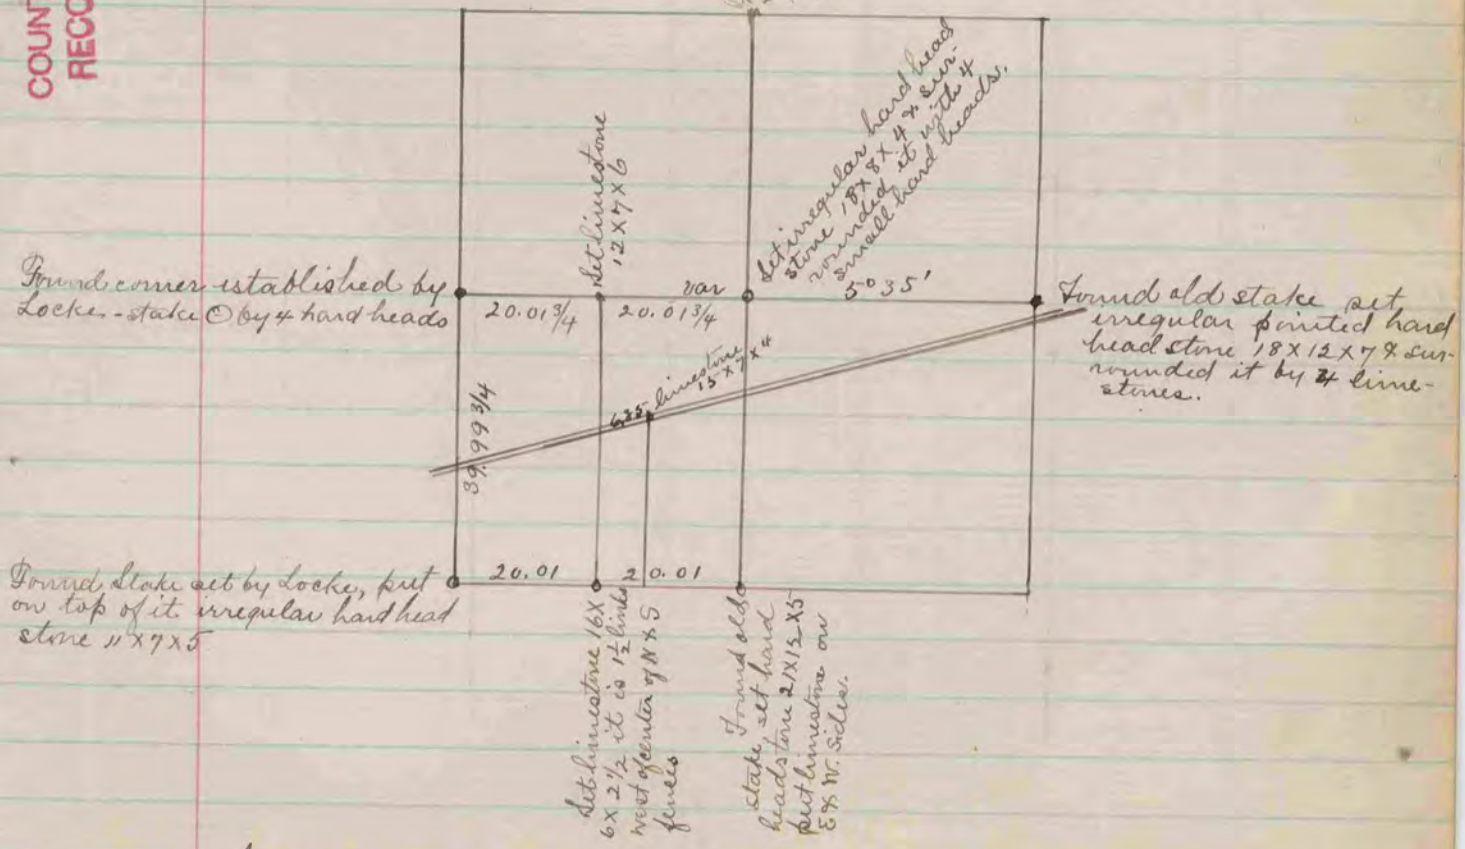 COUNT
RECO
Set limestone
12 X 7 X 6
Set irregular hard head
stone 18 X 8 X 4 & sur-
rounded it with 4
small hard heads.
Found corner established by
Locke - stake ⊙ by 4 hard heads
20.01 3/4
20.01 3/4
var
5° 35'
Found old stake set
irregular pointed hard
head stone 18 X 12 X 7 & sur-
rounded it by 4 lime-
stones.
limestone
15 X 7 X 4
6.35
39.99 3/4
Found Stake set by Locke, put
on top of it irregular hard head
stone 11 X 7 X 5
20.01
20.01
Set limestone 16 X
6 X 2 1/2 it is 1 1/2 links
west of center of N & S
fences
Found old
stake, set hard
head stone 21 X 12 X 5
put limestone on
E & W. Sides.